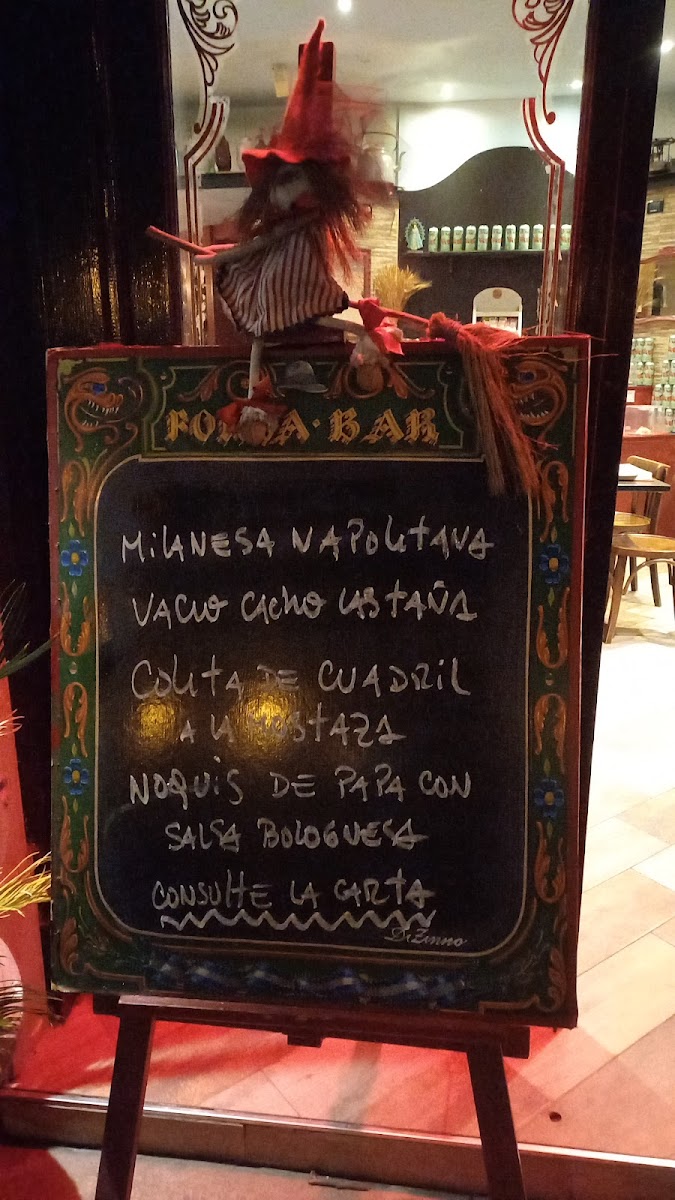 FONDA · BAR
MILANESA NAPOLITANA
VACIO CACHO CASTAÑA
COLITA DE CUADRIL
A LA MOSTAZA
NOQUIS DE PAPA CON
SALSA BOLOGNESA
CONSULTE LA CARTA
DiZinno